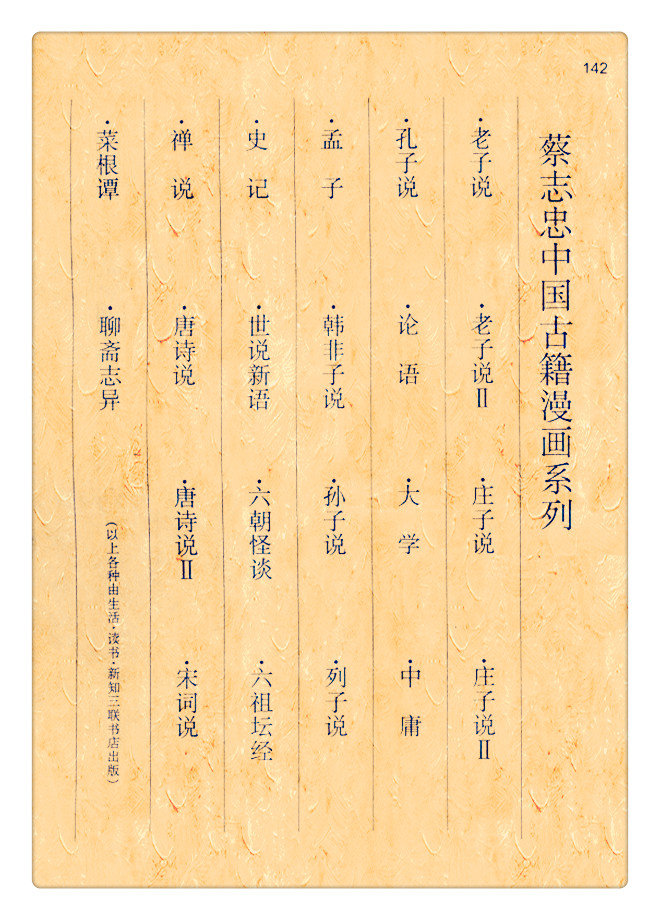 142
蔡志忠中国古籍漫画系列
·老子说 ·老子说Ⅱ ·庄子说 ·庄子说Ⅱ
·孔子说 ·论语 ·大学 ·中庸
·孟子 ·韩非子说 ·孙子说 ·列子说
·史记 ·世说新语 ·六朝怪谈 ·六祖坛经
·禅说 ·唐诗说 ·唐诗说Ⅱ ·宋词说
·菜根谭 ·聊斋志异 (以上各种由生活·读书·新知三联书店出版)